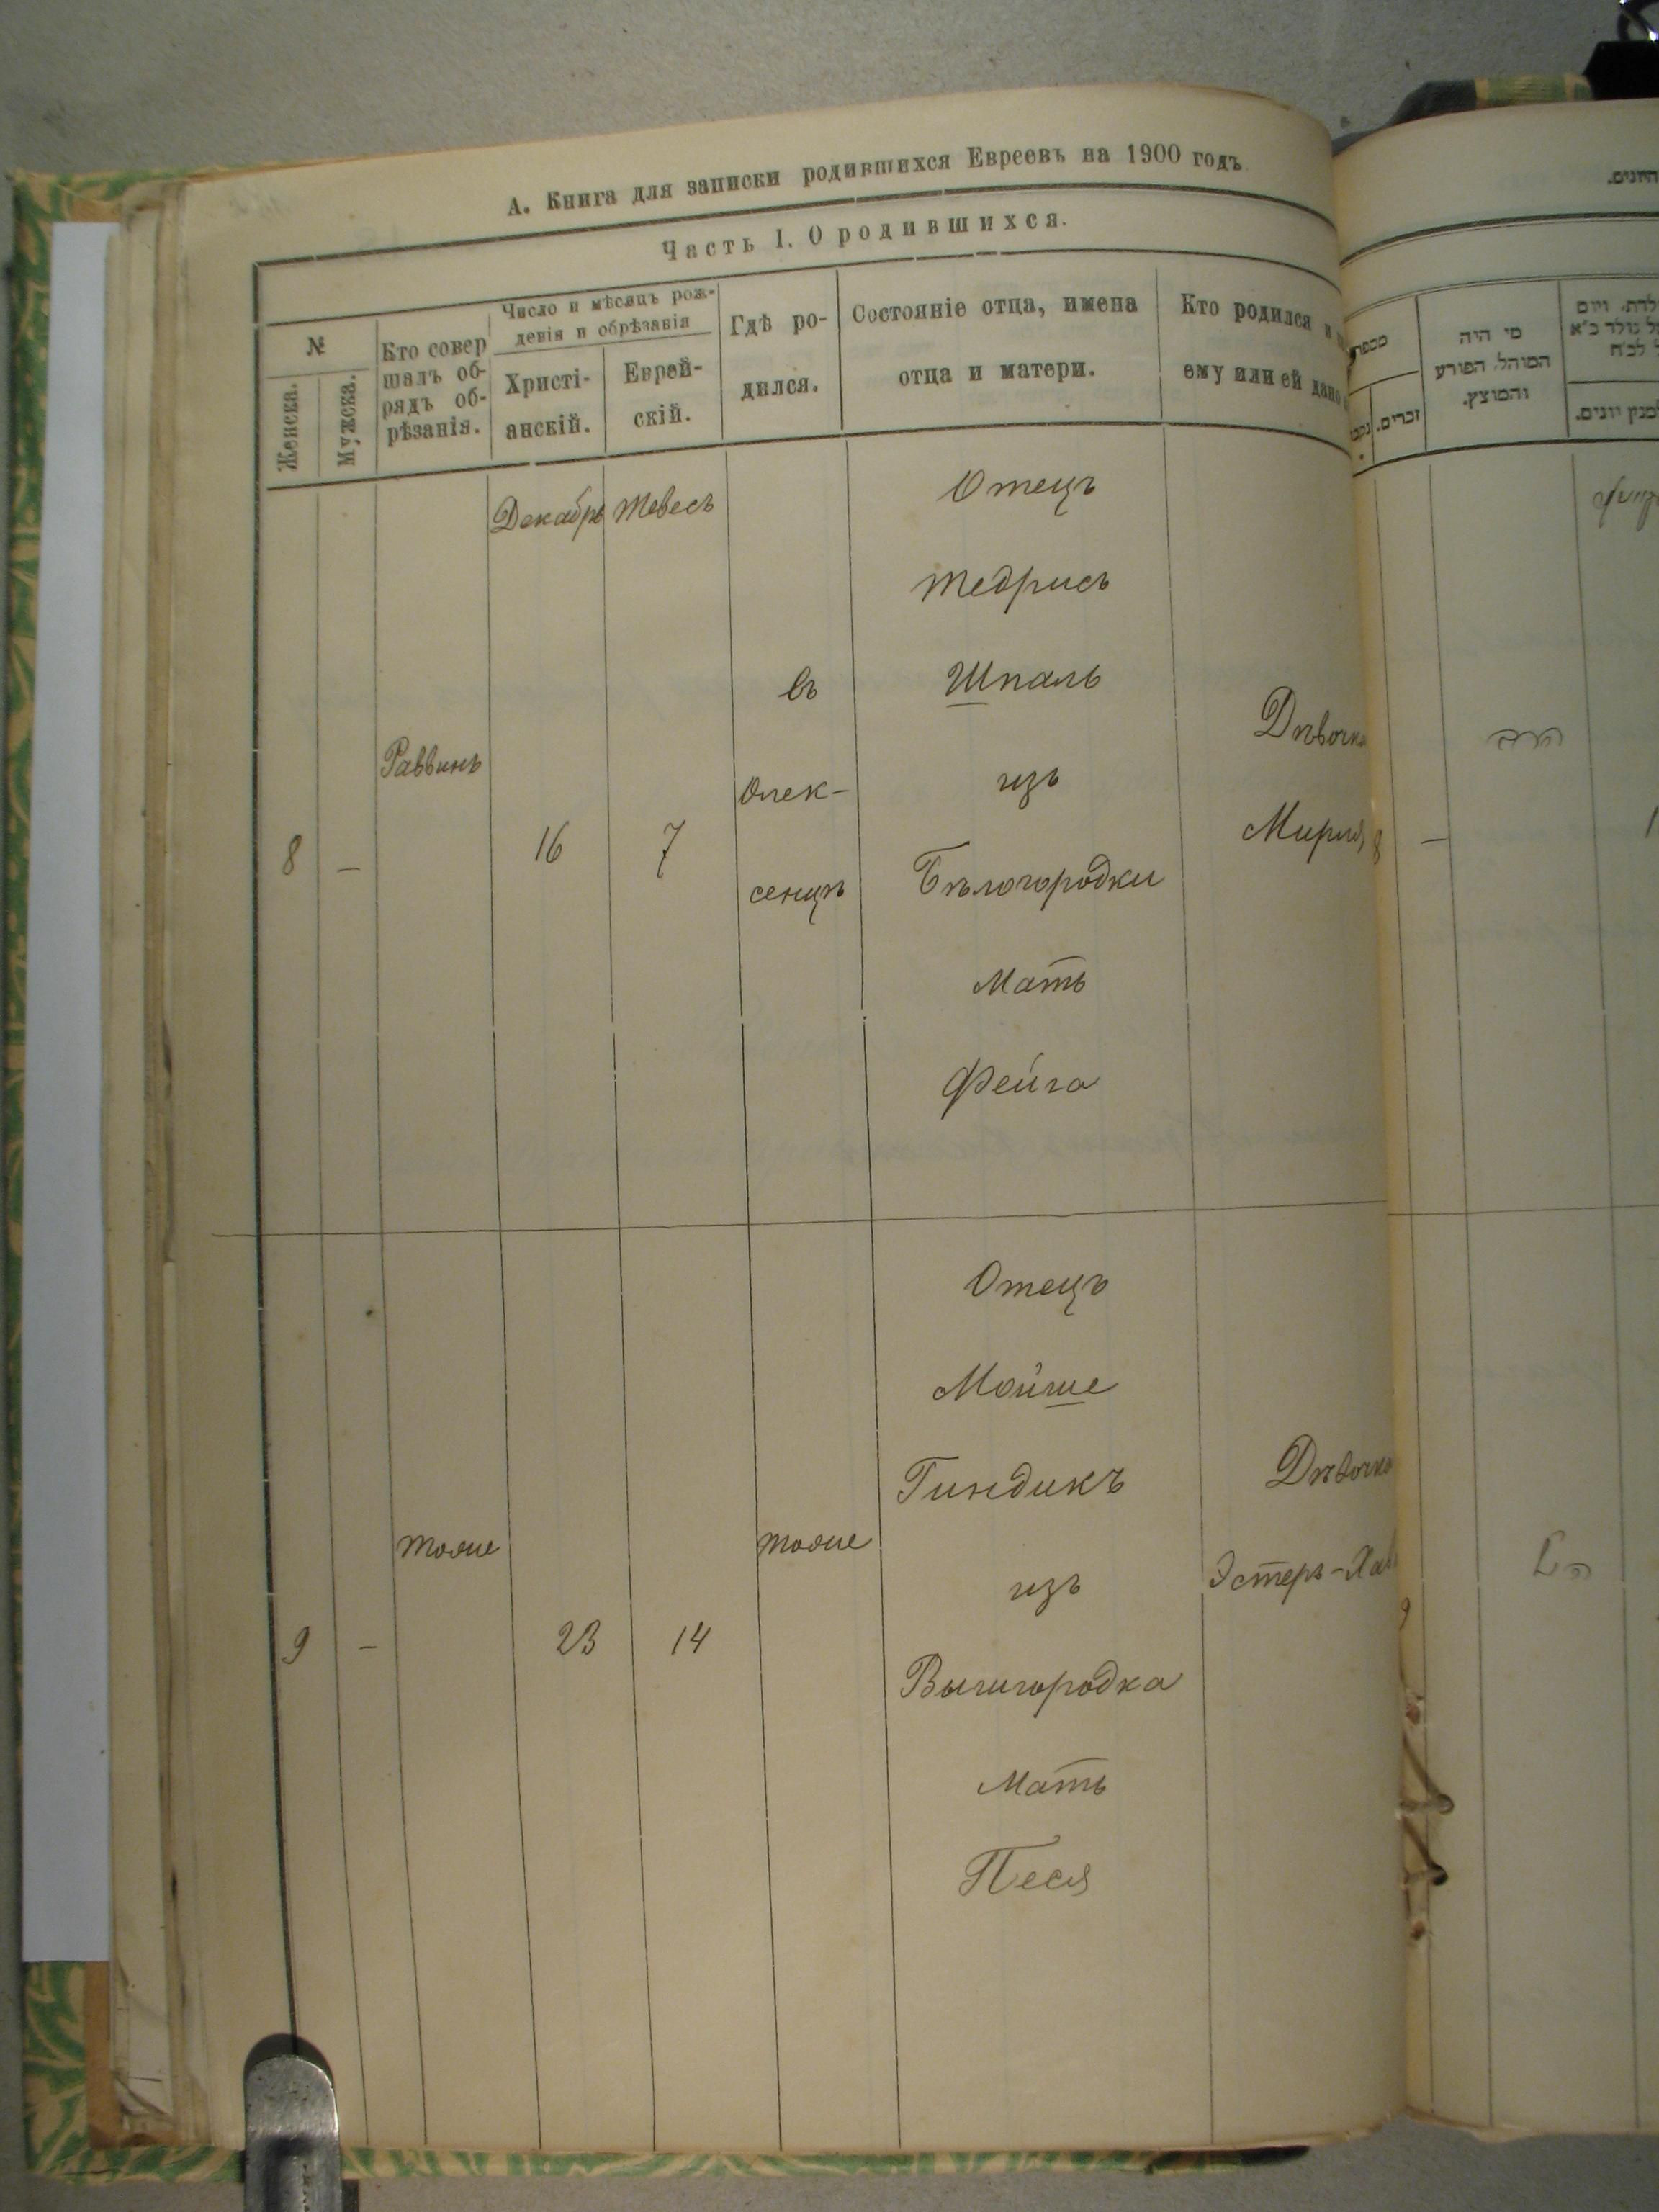 А. Книга для записки родившихся Евреевъ на 1900 годъ
Часть I. О родившихся.
№
Женска.
Мужска.
Кто совер
шалъ об-
рядъ об-
рѣзанія.
Число и мѣсяцъ рож-
денія и обрѣзанія
Христі-
анскій.
Еврей-
скій.
Гдѣ ро-
дился.
Состояніе отца, имена
отца и матери.
Кто родился и
ему или ей дано
Декабрь
Тевесъ
8
—
Раввинъ
16
7
въ
Олек-
сенцѣ
Отецъ
Тедрисъ
Шпаль
изъ
Бѣлогородки
Мать
Фейга
Дѣвочка
Мирля
9
—
тоже
23
14
тоже
Отецъ
Мойше
Гиндикъ
изъ
Вышгородка
Мать
Песя
Дѣвочка
Эстеръ-
מי היה
המוהל. הפורע
והמוצץ.
זכרים.
8
—
הרב
9